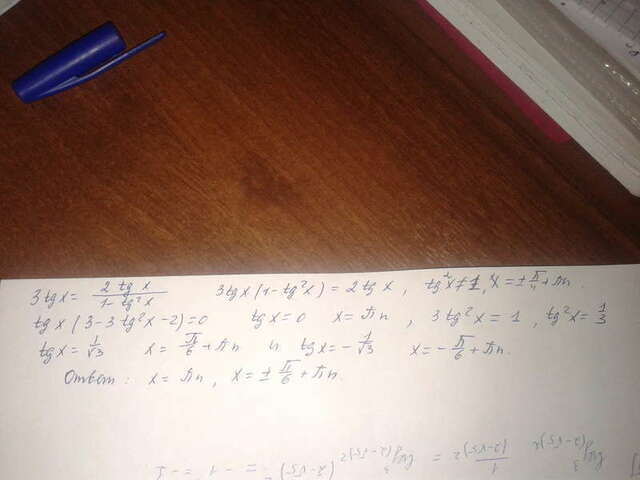 3tgx = 2tgx / 1-tg²x 3tgx(1-tg²x) = 2tgx, tg²x≠1, x=±π/4+πn.
tgx(3-3tg²x-2)=0 tgx=0 x=πn, 3tg²x=1, tg²x=1/3
tgx=1/√3 x=π/6+πn и tgx=-1/√3 x=-π/6+πn.
Ответ: x=πn, x=±π/6+πn.